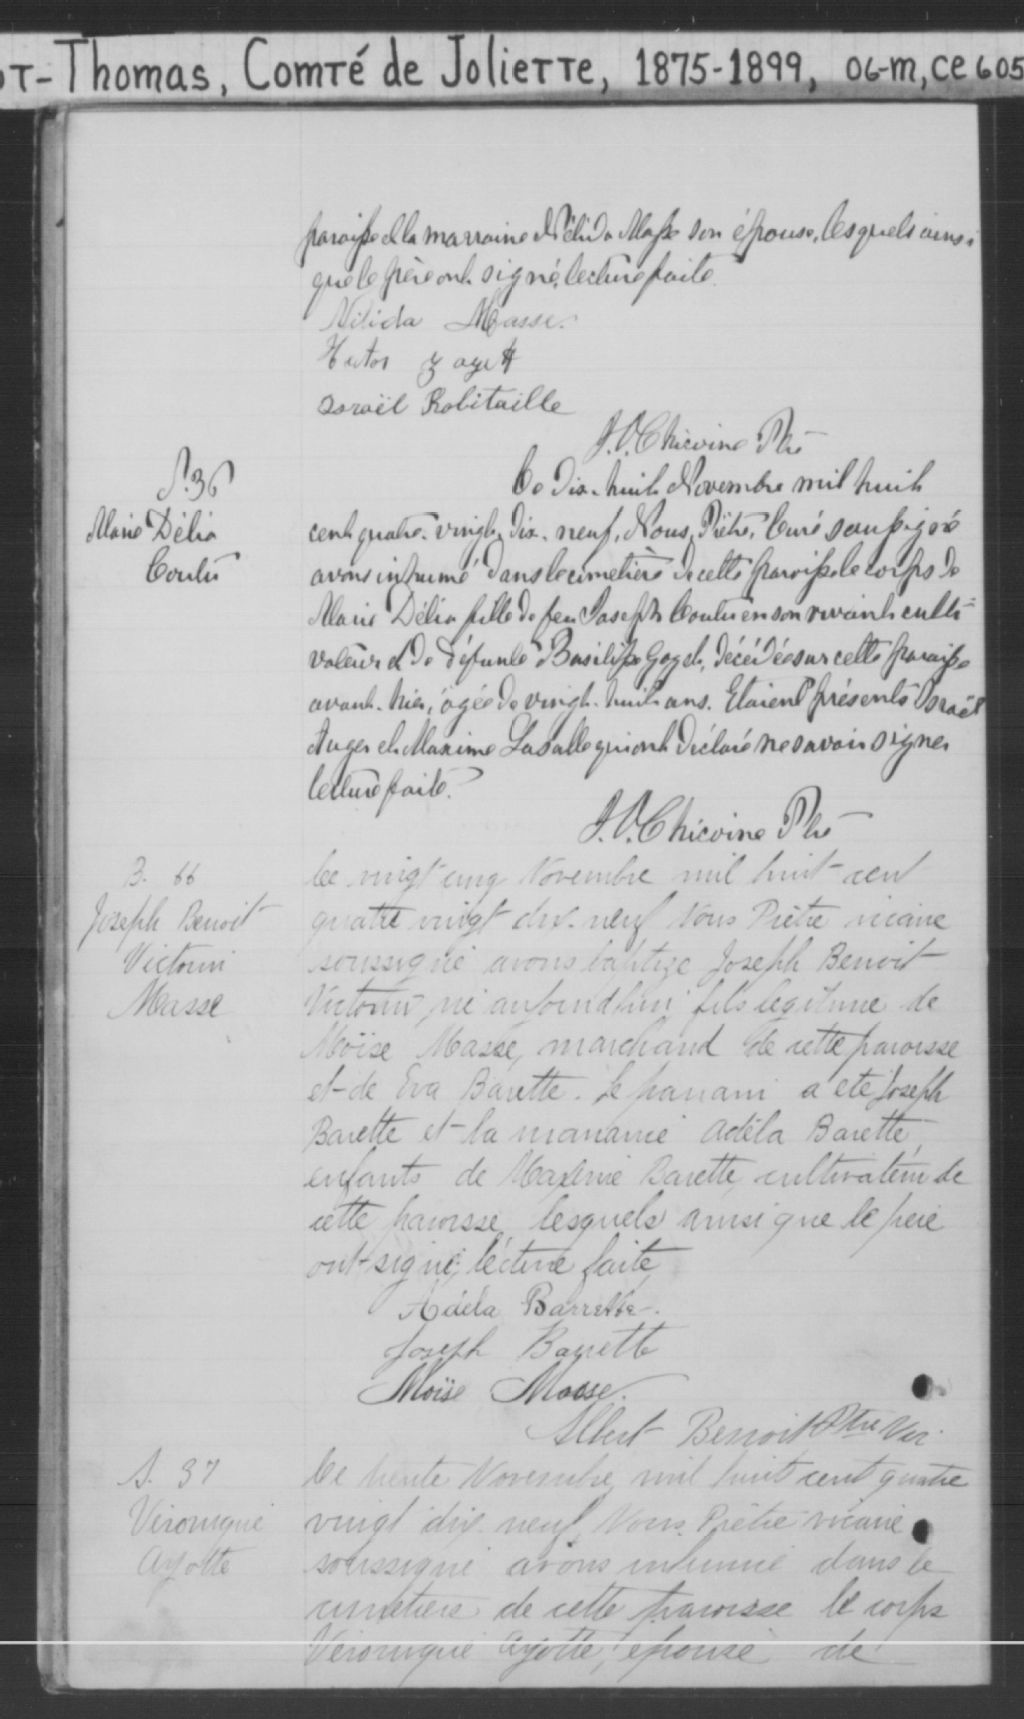 ot-Thomas, Comté de Joliette, 1875-1899, 06-m, ce605
paroisse et la marraine Nélida Masse son épouse, lesquels ainsi
que le père ont signé, lecture faite.
Nélida Masse.
Israël Robitaille
J.O. Chicoine Ptre
S. 36
Marie Délia
Coutu
Ce dix-huit Novembre mil huit
cent quatre-vingt-dix-neuf, Nous, Prêtre, Curé soussigné
avons inhumé dans le cimetière de cette paroisse le corps de
Marie Délia fille de feu Joseph Coutu en son vivant culti-
vateur et de défunte Basilisse Goyet, décédée sur cette paroisse
avant-hier, âgée de vingt-huit ans. Etaient présents Israël
Auger et Maxime Lasalle qui ont déclaré ne savoir signer
lecture faite.
J.O. Chicoine Ptre
B. 66
Joseph Benoit
Victorin
Masse
Ce vingt cinq Novembre mil huit cent
quatre vingt dix-neuf Nous Prêtre vicaire
soussigné avons baptizé Joseph Benoit
Victorin, né aujourd'hui fils légitime de
Moïse Masse, marchand de cette paroisse
et de Eva Barette. Le parrain a été Joseph
Barette et la marraine Adéla Barette,
enfants de Maxime Barette, cultivateur de
cette paroisse, lesquels ainsi que le père
ont signé, lecture faite
Adéla Barrette.
Joseph Barrette
Moïse Masse.
Albert Benoit Ptre Vic.
S. 37
Véronique
Ayotte
Ce trente Novembre mil huit cent quatre
vingt dix neuf, Nous Prêtre vicaire
soussigné avons inhumé dans le
cimetière de cette paroisse le corps
Véronique Ayotte, épouse de